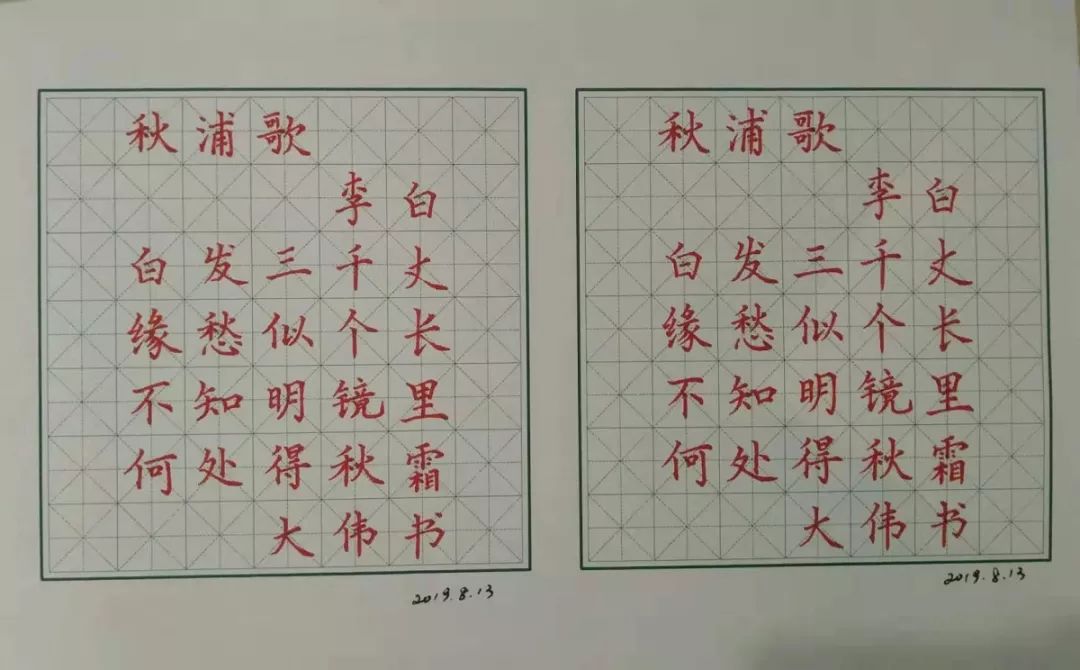 秋浦歌
李白
白发三千丈
缘愁似个长
不知明镜里
何处得秋霜
大伟书
2019.8.13
秋浦歌
李白
白发三千丈
缘愁似个长
不知明镜里
何处得秋霜
大伟书
2019.8.13